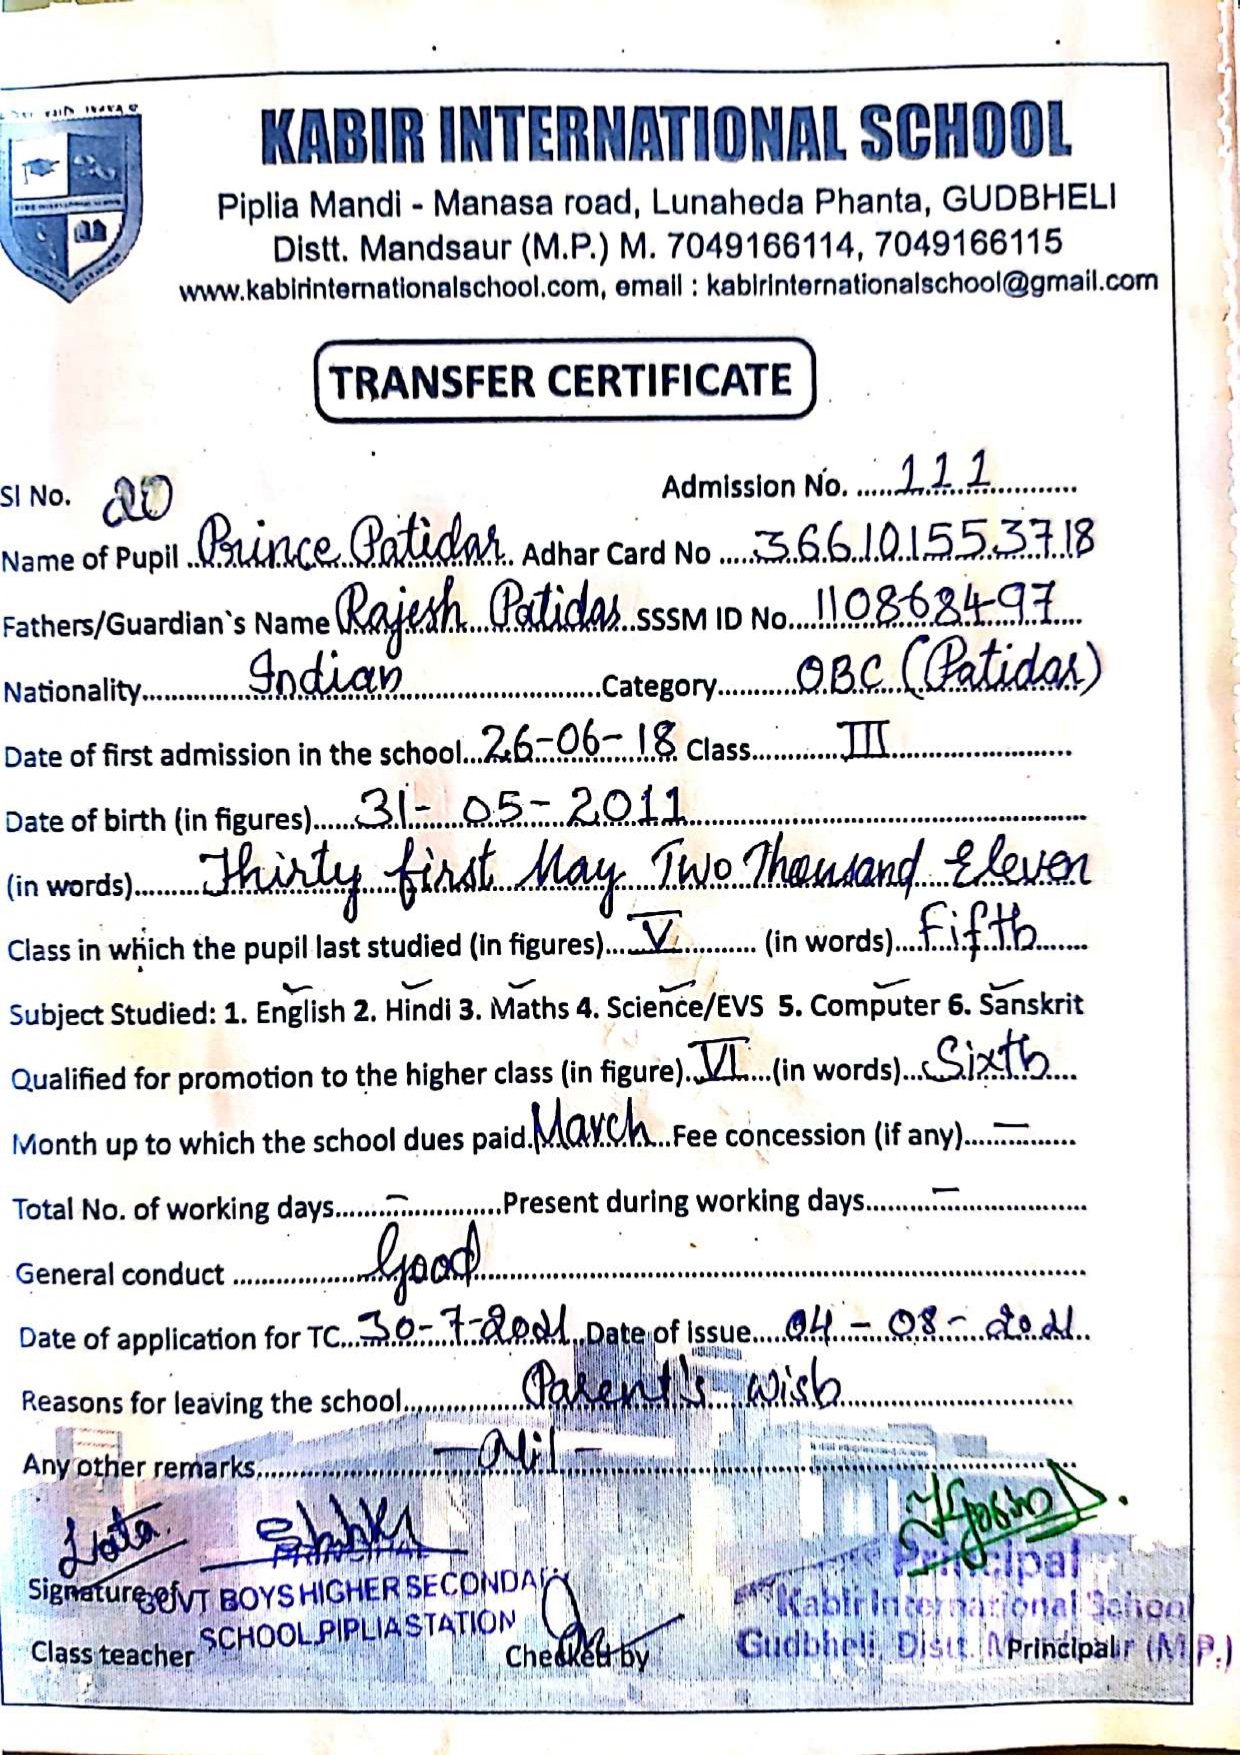 KABIR INTERNATIONAL SCHOOL
Piplia Mandi - Manasa road, Lunaheda Phanta, GUDBHELI
Distt. Mandsaur (M.P.) M. 7049166114, 7049166115
www.kabirinternationalschool.com, email : kabirinternationalschool@gmail.com
TRANSFER CERTIFICATE
Sl No. 20 Admission No. ......111............
Name of Pupil ..Prince Patidar.. Adhar Card No ....366101553718
Fathers/Guardian`s Name Rajesh Patidar..SSSM ID No...110868497....
Nationality.............Indian.........................Category..........OBC (Patidar)
Date of first admission in the school...26-06-18 Class............III......................
Date of birth (in figures)......31-05-2011..................................................
(in words).........Thirty first May Two Thousand Eleven
Class in which the pupil last studied (in figures).....V............ (in words)....Fifth.......
Subject Studied: 1. English 2. Hindi 3. Maths 4. Science/EVS 5. Computer 6. Sanskrit
Qualified for promotion to the higher class (in figure)..VI....(in words)...Sixth....
Month up to which the school dues paid.March...Fee concession (if any)......—.........
Total No. of working days.......—...........Present during working days.........—...............
General conduct ..................Good.............................................................................
Date of application for TC...30-7-2021..Date of issue.....04-08-2021..
Reasons for leaving the school...............Parent's wish.............................
Any other remarks.........................-Nil-...............................................................
Lata
PRINCIPAL
Signature of GOVT BOYS HIGHER SECONDARY
SCHOOL PIPLIA STATION
Class teacher
Checked by
Principal
Kabir International School
Gudbheli, Distt. (M.P.)
Principal